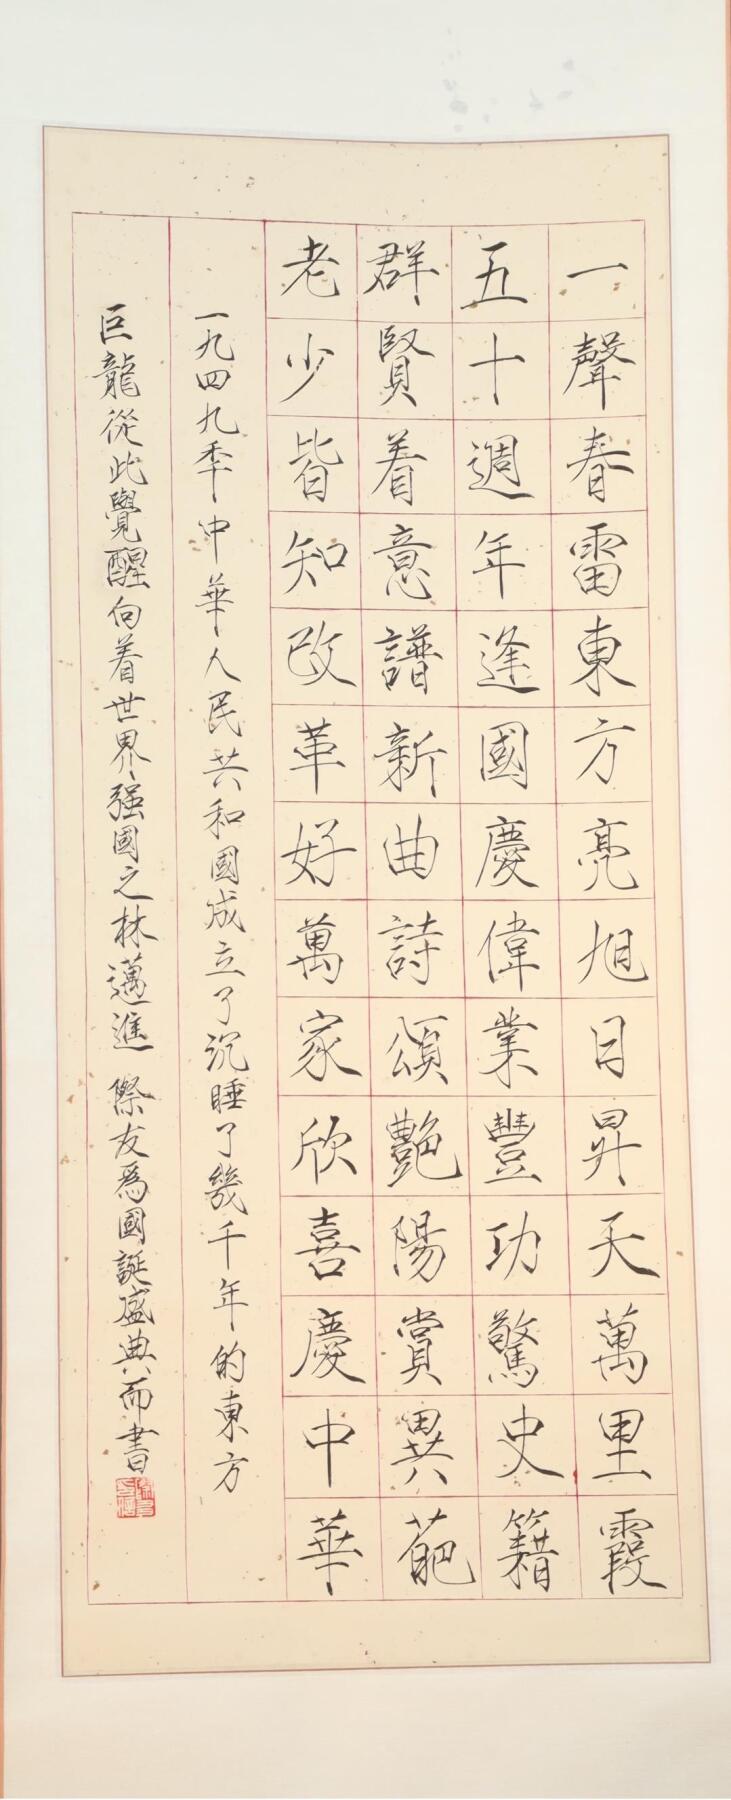 一聲春雷東方亮旭日昇天萬里霞
五十週年逢國慶偉業豐功驚史籍
群賢着意譜新曲詩頌艷陽賞異葩
老少皆知改革好萬家欣喜慶中華
一九四九季中華人民共和國成立了沉睡了幾千年的東方
巨龍從此覺醒向着世界强國之林邁進 際友爲國誕盛典而書